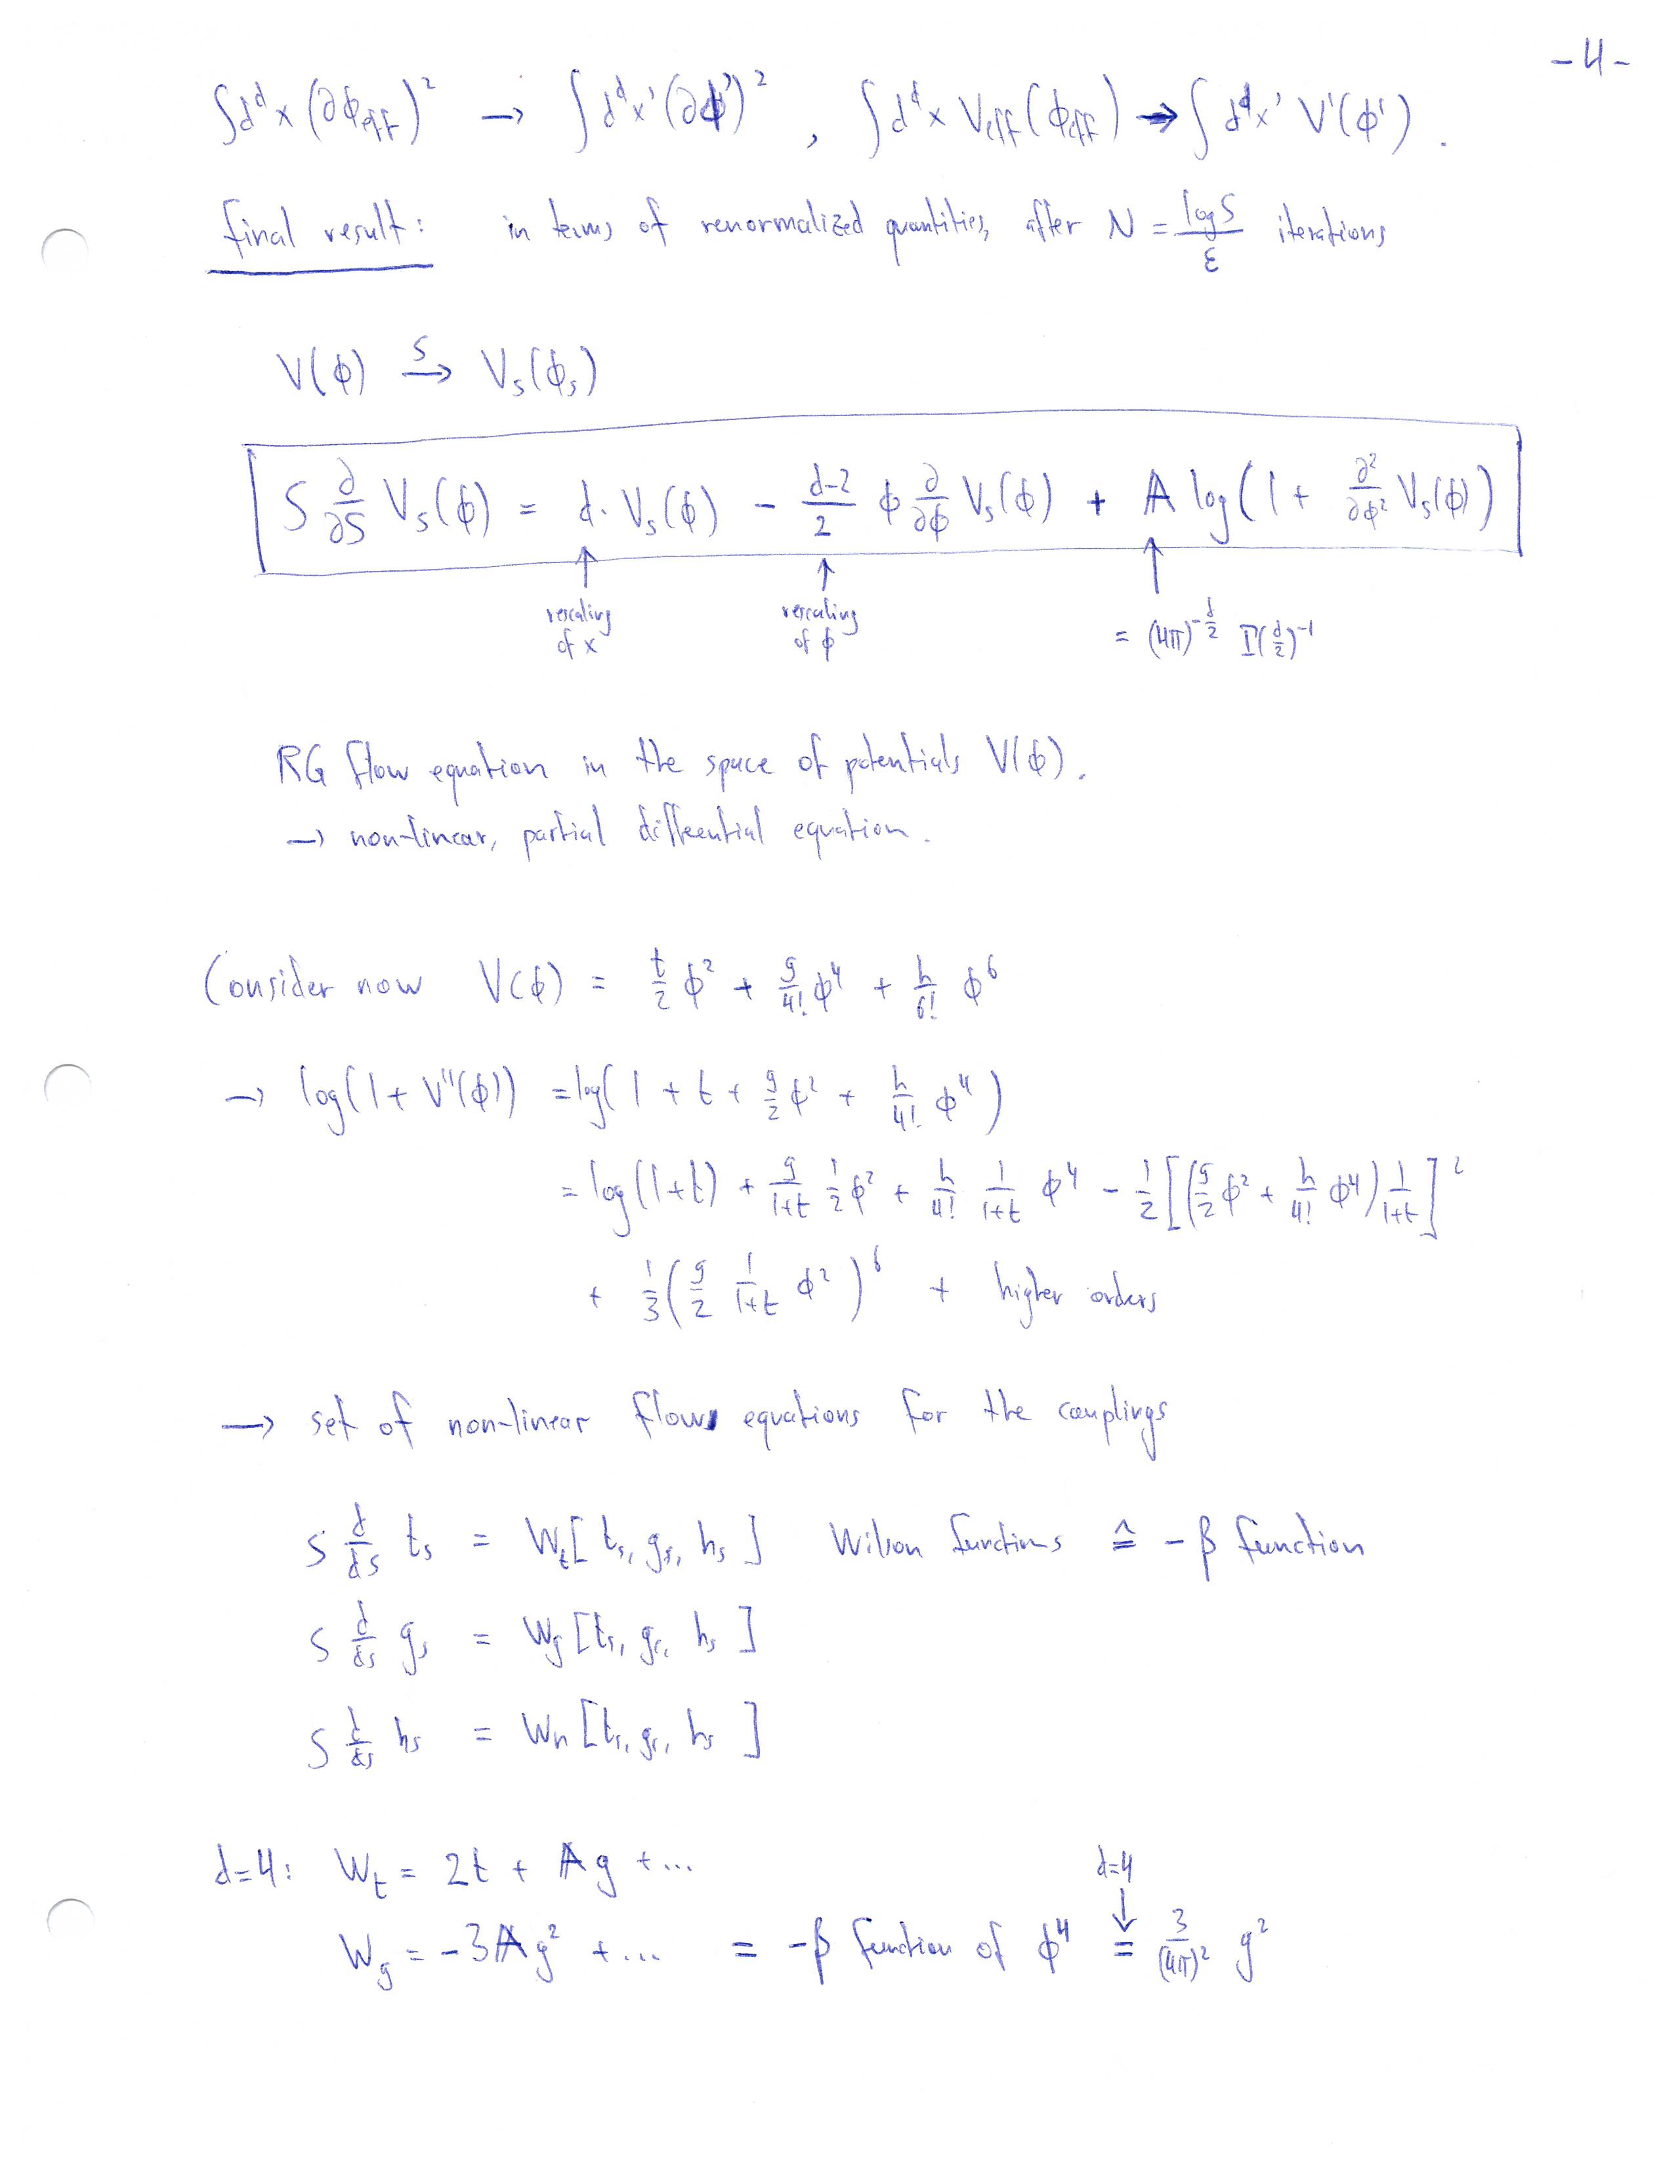 -4-
∫d^d x (∂ϕ_eff)² → ∫d^d x' (∂ϕ')² , ∫d^d x V_eff(ϕ_eff) → ∫d^d x' V'(ϕ') .
final result: in terms of renormalized quantities, after N = log S / ε iterations
V(ϕ) →^S V_s(ϕ_s)
S ∂/∂S V_s(ϕ) = d · V_s(ϕ) - (d-2)/2 ϕ ∂/∂ϕ V_s(ϕ) + A log(1 + ∂²/∂ϕ² V_s(ϕ))
↑ rescaling of x ↑ rescaling of ϕ ↑ = (4π)^(-d/2) Γ(d/2)^-1
RG flow equation in the space of potentials V(ϕ).
→ non-linear, partial differential equation.
Consider now V(ϕ) = t/2 ϕ² + g/4! ϕ⁴ + h/6! ϕ⁶
→ log(1 + V''(ϕ)) = log(1 + t + g/2 ϕ² + h/4! ϕ⁴)
= log(1+t) + g/(1+t) 1/2 ϕ² + h/4! 1/(1+t) ϕ⁴ - 1/2 [(g/2 ϕ² + h/4! ϕ⁴) 1/(1+t)]²
+ 1/3 (g/2 1/(1+t) ϕ²)⁶ + higher orders
→ set of non-linear flow equations for the couplings
S d/ds t_s = W_t[t_s, g_s, h_s] Wilson functions ≙ -β function
S d/ds g_s = W_g[t_s, g_s, h_s]
S d/ds h_s = W_h[t_s, g_s, h_s]
d=4: W_t = 2t + Ag + ...
d=4 ↓
W_g = -3Ag² + ... = -β function of ϕ⁴ = 3/(4π)² g²